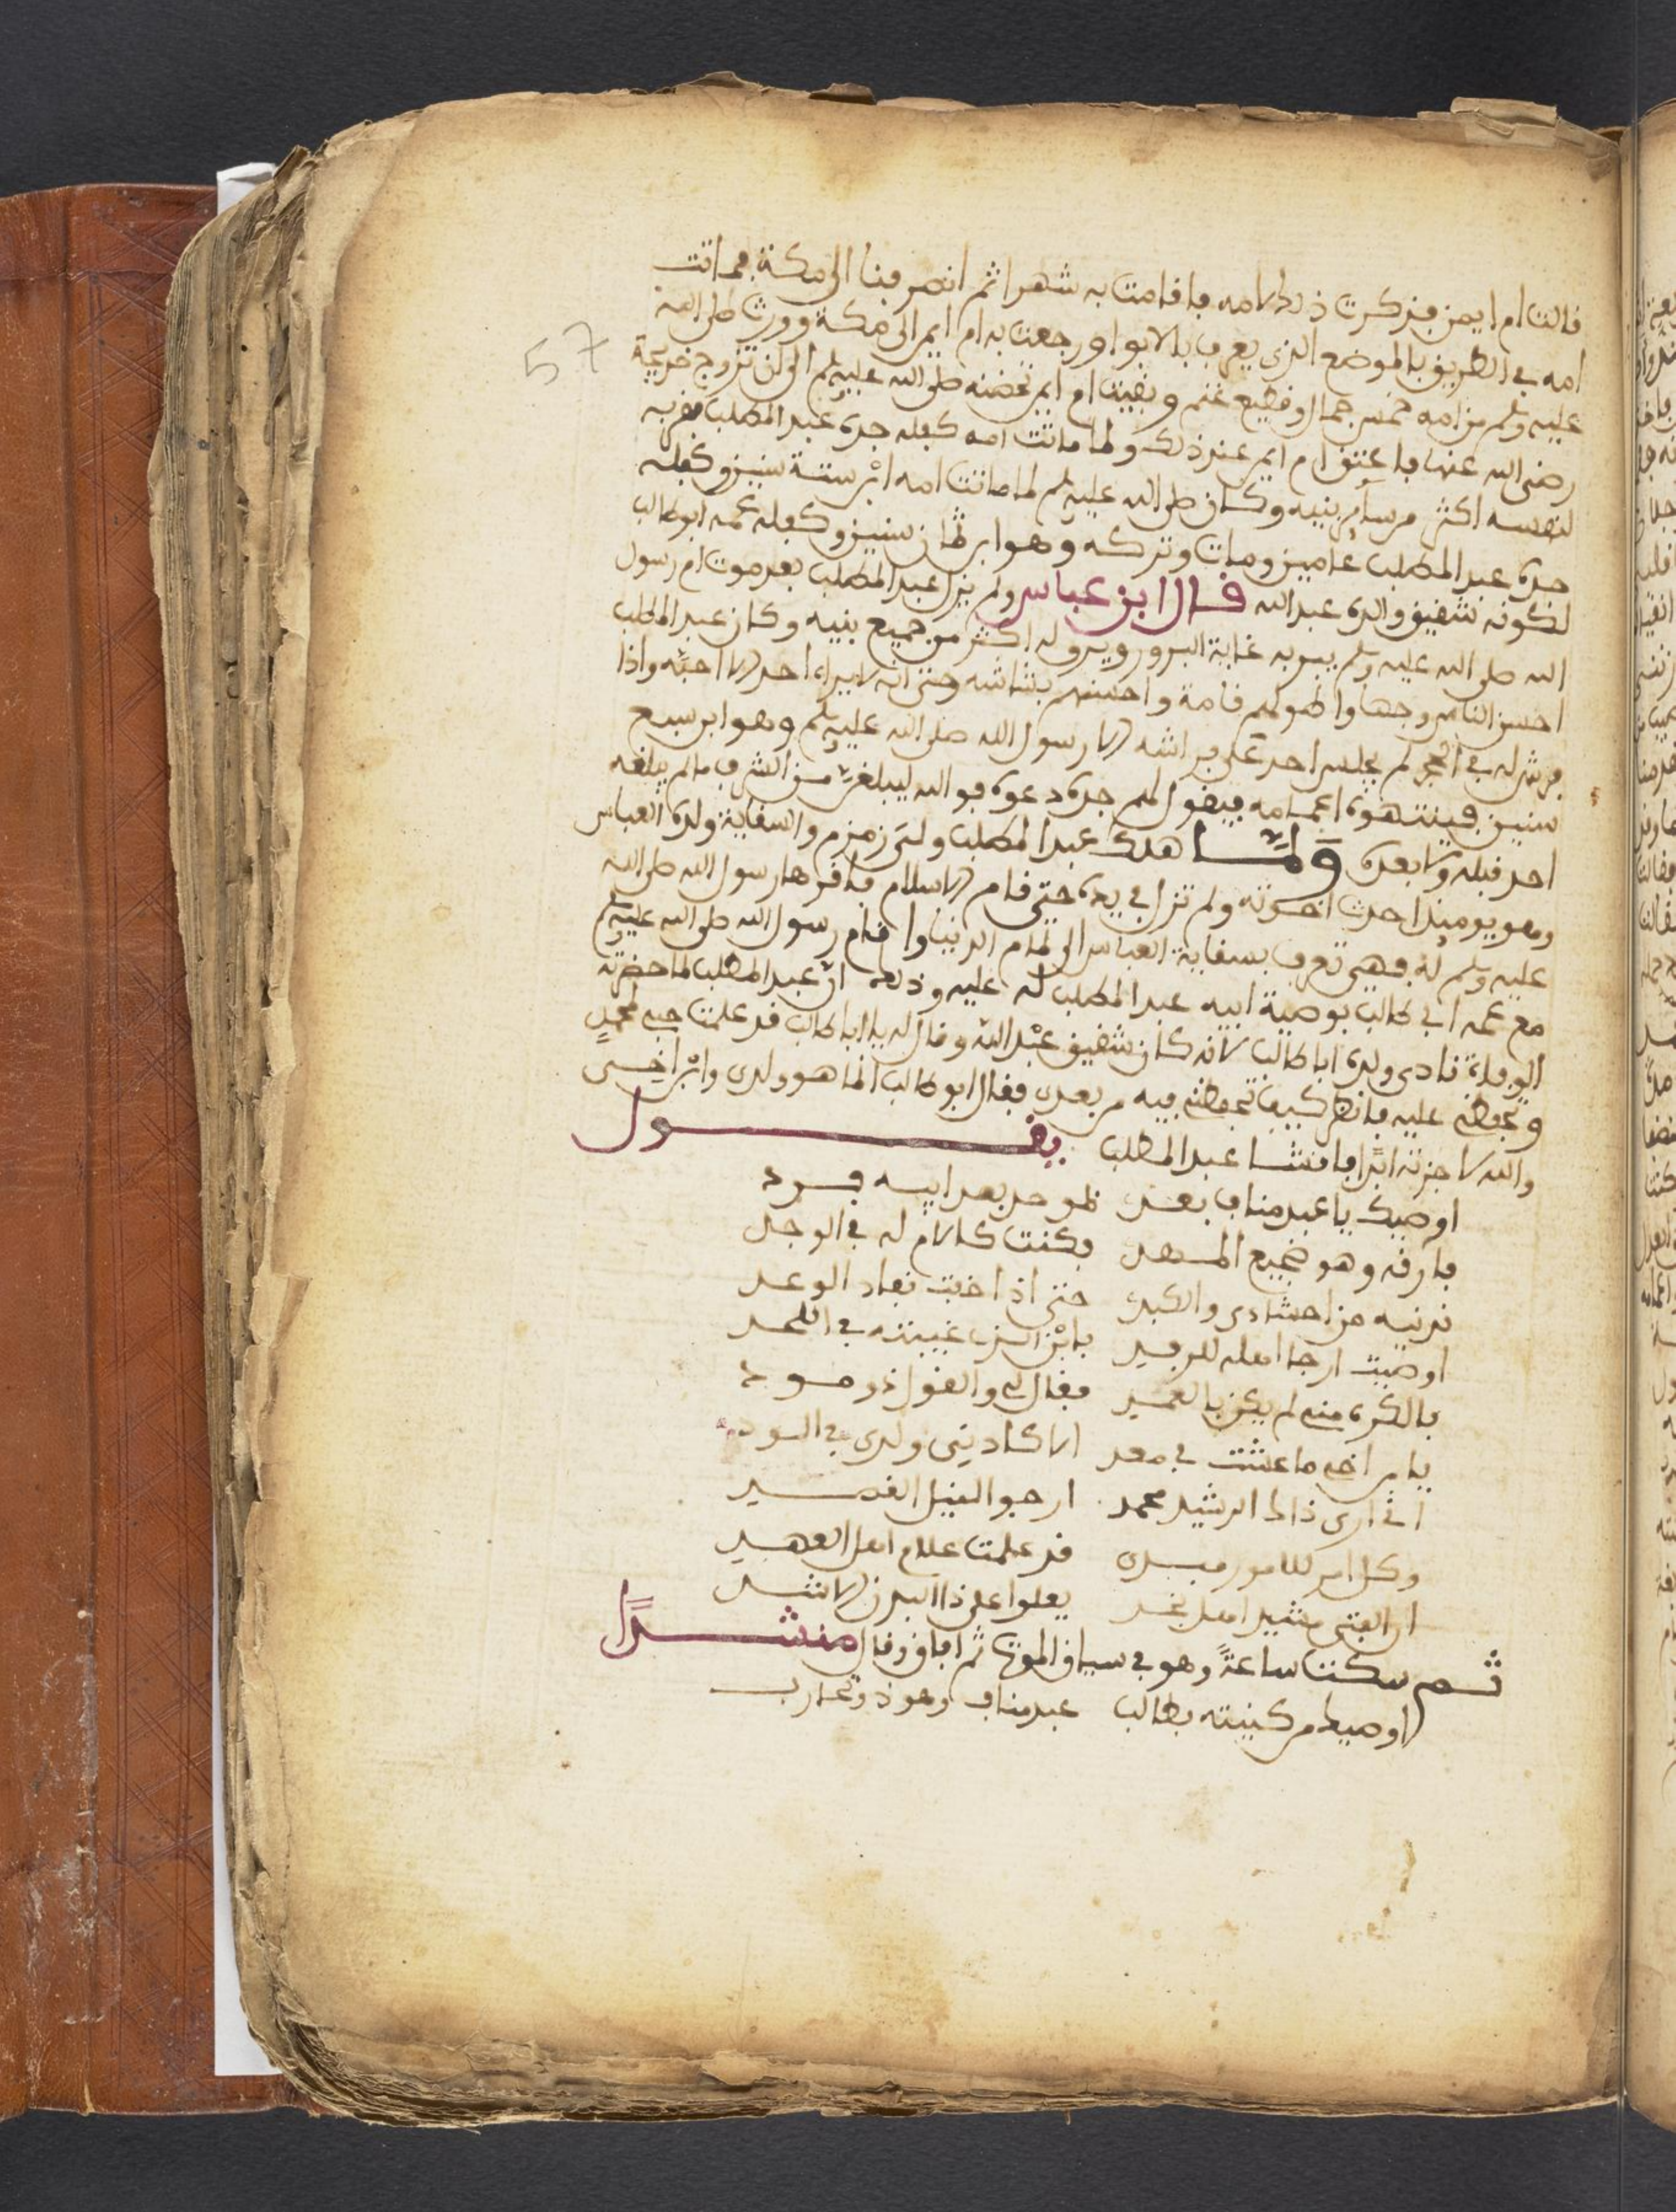 قالت ام ايمن فذكرت ذلك لامه فاقامت به شهرا ثم انصرفنا الى مكة فماتت
امه في الطريق بالموضع الذي يعرف بالابوا ورجعت به ام ايمن الى مكة وورث صلى الله
57
عليه وسلم من امه خمس جمال وقطيع غنم وبقيت ام ايمن تحضنه صلى الله عليه وسلم الى ان تزوج خديجة
رضي الله عنها فاعتق ام ايمن عند ذلك ولما ماتت امه كفله جده عبد المطلب فقربه
لنفسه اكثر من ساير بنيه وكان صلى الله عليه وسلم لما ماتت امه ابن ستة سنين وكفله
جده عبد المطلب عامين ومات وتركه وهو ابن ثمان سنين وكفله عمه ابو طالب
لكونه شقيق والده عبد الله قال ابن عباس ولم يزل عبد المطلب بعد موت ام رسول
الله صلى الله عليه وسلم يبر به غاية البرور ويروله اكثر من جميع بنيه وكان عبد المطلب
احسن الناس وجها واطولهم قامة واحسنهم بشاشه وحتى انه لا يراه احد الا احبه واذا
فرش له في الحجر لم يجلس احد على فراشه الا رسول الله صلى الله عليه وسلم وهو ابن سبع
سنين فينتهوه اعمامه فيقول لهم جده دعوه فوالله ليبلغن من الشرف مالم يبلغه
احد قبله ولا بعده ولما هلك عبد المطلب ولى زمزم والسقاية ولده العباس
وهو يوميذ احدث اخوته ولم تزل في يده حتى قام الاسلام فاقرها رسول الله صلى الله
عليه وسلم له فهي تعرف بسقاية العباس الى تمام الدنيا واقام رسول الله صلى الله عليه وسلم
مع عمه ابي طالب بوصية ابيه عبد المطلب له عليه وذلك ان عبد المطلب لما حضرته
الوفاة نادى ولده ابا طالب لانه كان شقيق عبد الله وقال له يا ابا طالب قد علمت حبي لمحمد
وتحفظي عليه فانظر كيف تحفظني فيه من بعدي فقال ابو طالب انما هو ولدي وابن اخي
والله لا حزنته ابدا فانشا عبد المطلب يقول
اوصيك يا عبد مناف بعدي لموحد بعد ابيه فرد
فارقه وهو ضجيع المهد فكنت كالام له في الوجد
تدنيه من احشادي والكبد حتى اذا خفت نفاد الوعد
اوصيت ارجا اهله للرفد بابن الذي غيبته في اللحد
بالكره مني لم يكن بالعمد فقال لي والقول ذو مود
يا بن اخي ما عشت في معد الا كادني ولدي في الود
اني ارى ذاك الرشيد محمد ارجو النبيل القصد
وكل امر للامور مبدى قد علمت علام اهل العهد
ان الفتى مشيد اهل نجد يعلوا على ذا البدن الاشد
ثم سكت ساعة وهو في سياق الموت ثم افاق وقال منشدا
اوصيك من كنيته بطالب عبد مناف وهو ذو تجارب